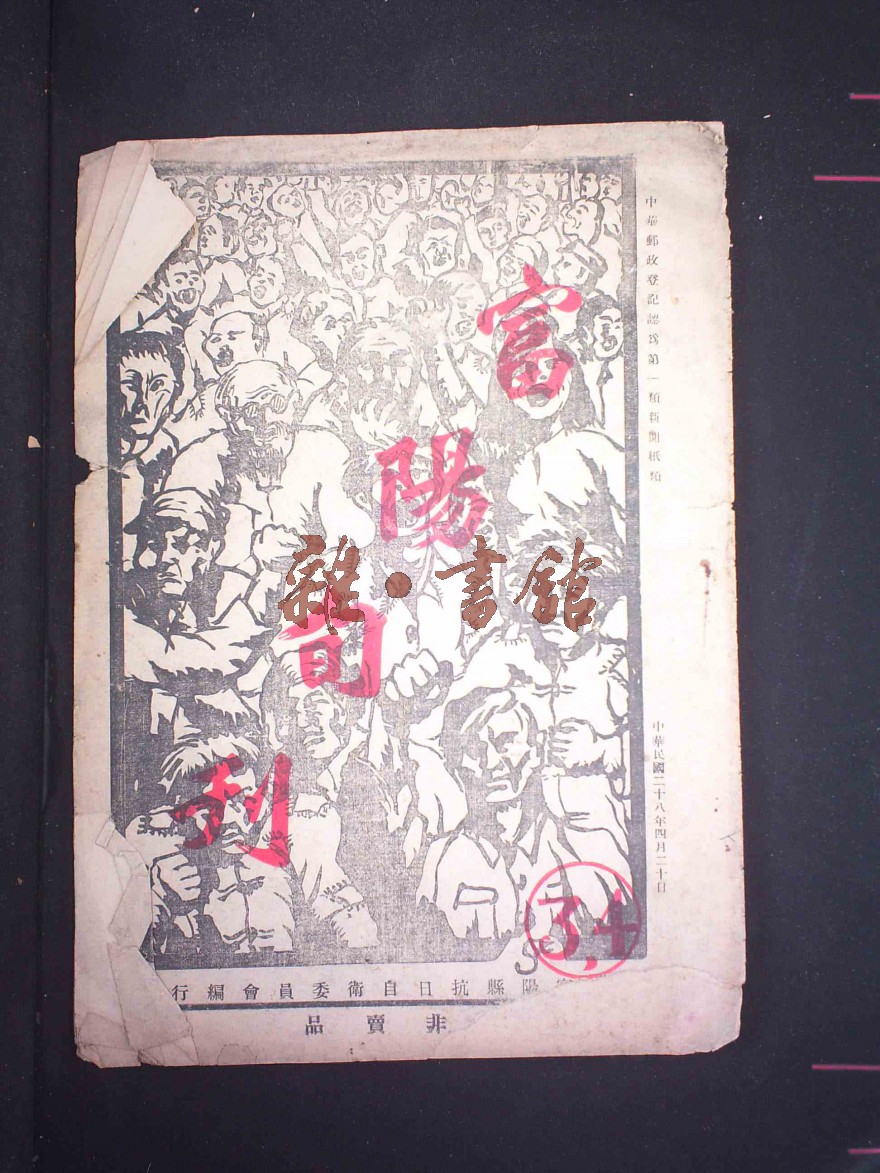 中華郵政登記認爲第一類新聞紙類
中華民國二十八年四月二十日
富陽旬刊
3,4
雜·書館
富陽縣抗日自衛委員會編行
非賣品